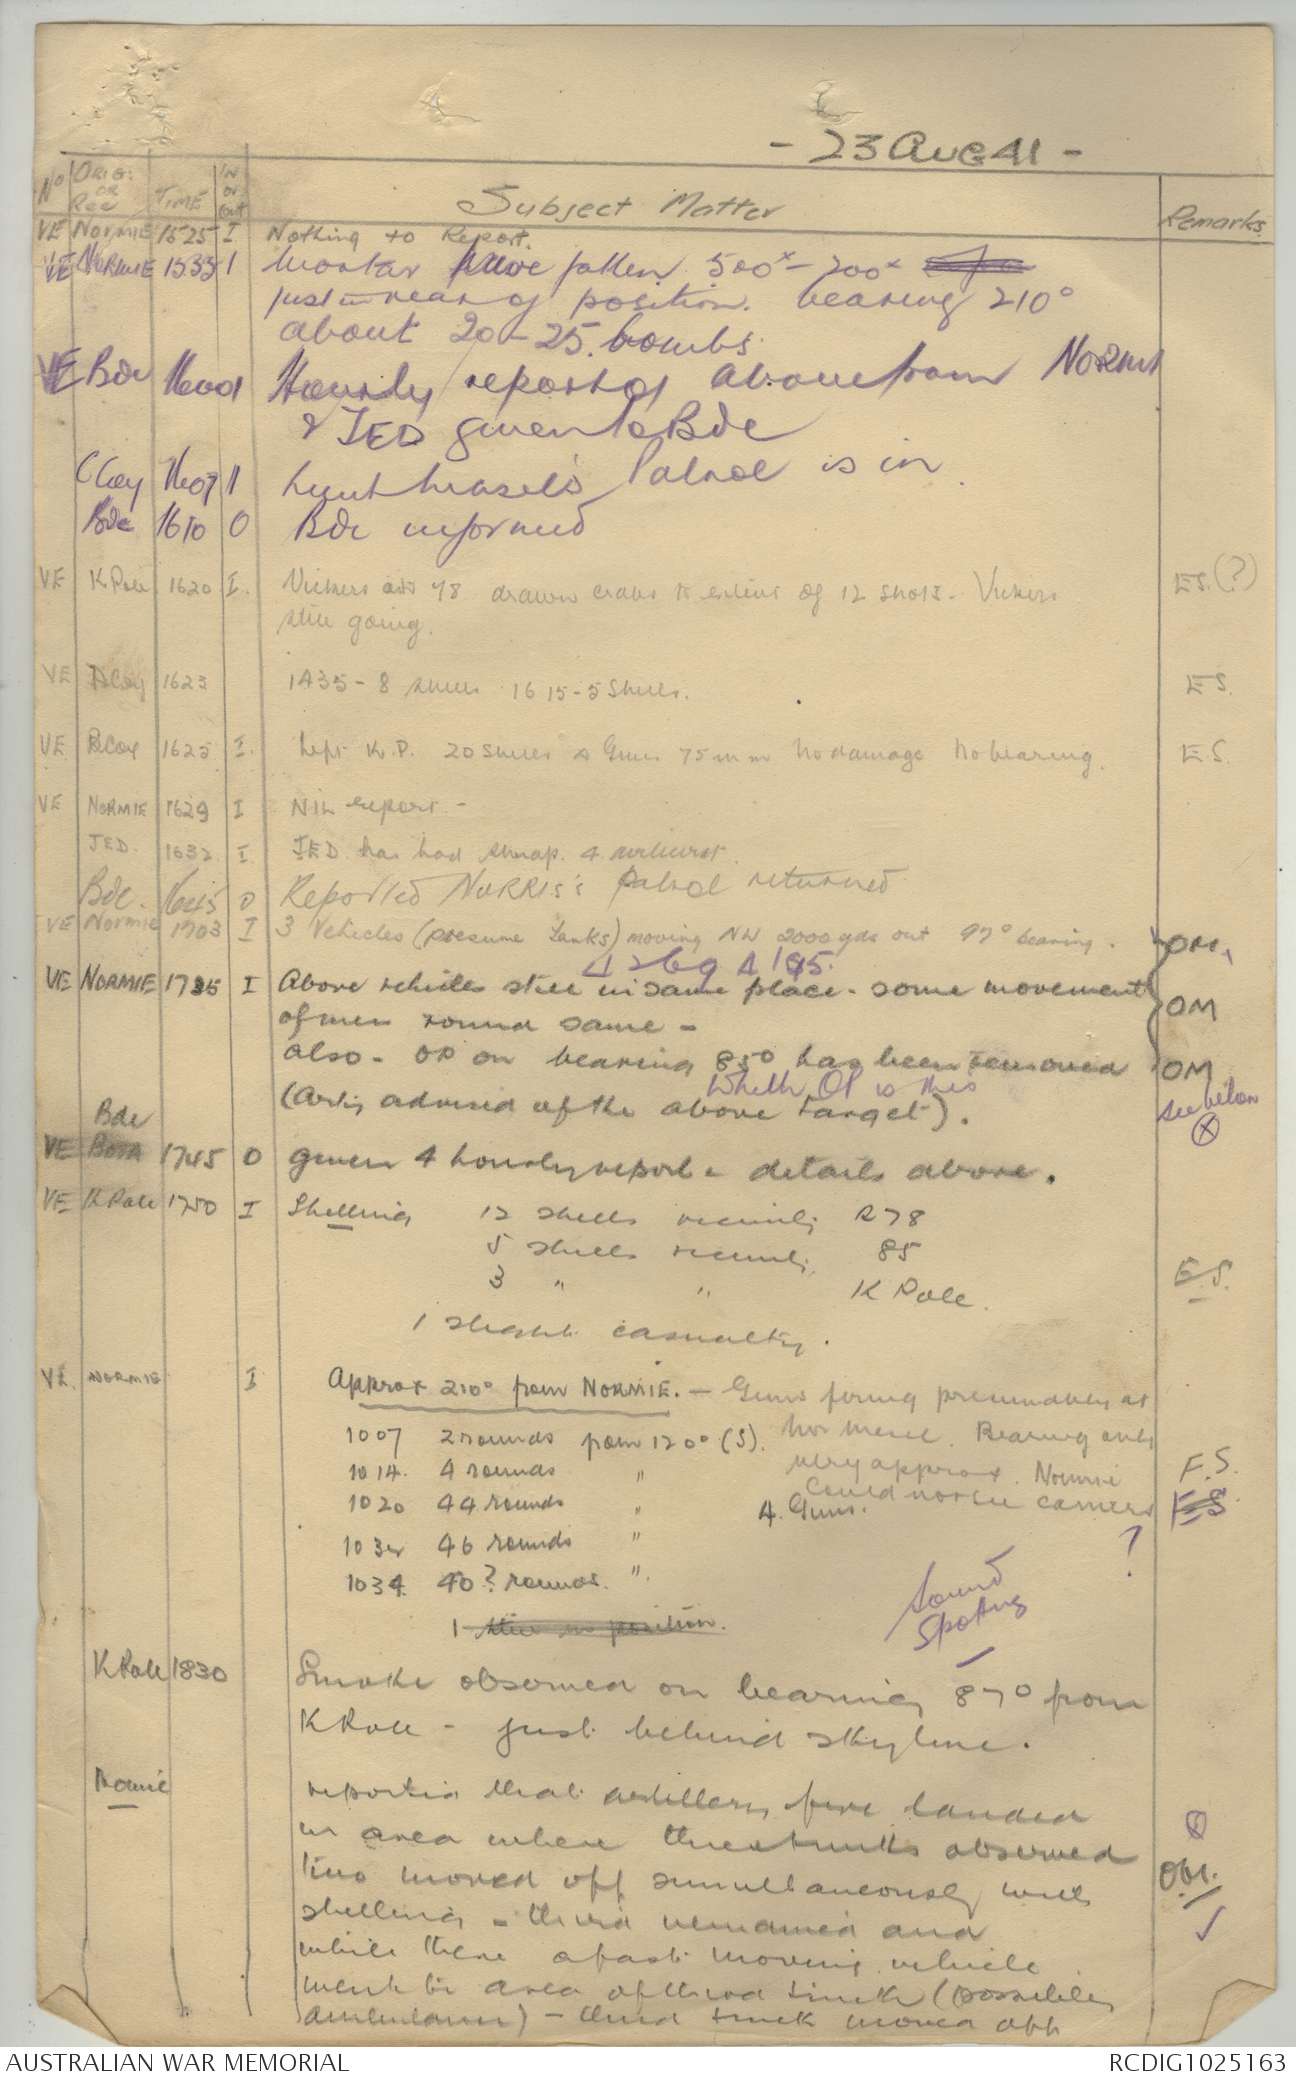 - 23 AUG 41 -
No ORIG: OR Rec TIME IN or out Subject Matter Remarks
VE NORMIE 1525 I Nothing to Report.
VE NORMIE 1533 I Mortar have fallen 500x - 200x
just in rear of position. bearing 210°
about 20 - 25. bombs.
VE Bde 1600 Hourly report of above from NORMIE
& JED given to Bde
C Coy 1607 I Patrol is in
Bde 1610 O Bde informed
VE K Pole 1620 I. Vickers 78 drawn crabs to extent of 12 shots. Vickers E.S. (?)
still going.
VE D Coy 1623 1435 - 8 shells 1615 - 5 Shells. E S.
VE B Coy 1625 I. K.P. 20 shells 4 Guns 75 mm No damage No bearing. E.S.
VE NORMIE 1629 I NIL report -
JED. 1632 I JED has had shrap. 4 airburst.
Bde. 1645 O Reported NORRIS's Patrol returned
VE Normie 1703 I 3 Vehicles (presume Tanks) moving NW 2000 yds out 97° bearing. OM.
VE NORMIE 1735 I Above vehicles still in same place - some movement OM
of men round same -
also - OP on bearing 85° has been removed OM
Whether OP is this see below
(Arty advised of the above target).
Bde
VE 1745 O given 4 hourly report - details above.
VE K Pole 1750 I Shelling 12 shells vicinity R78
5 shells vicinity 85
3 " " K Pole. E.S.
1 slight casualty.
VE. NORMIE I Approx 210° from NORMIE. - Guns firing presumably at
1007 2 rounds from 120° (S). Bearing only
1014. 4 rounds " very approx. Normie F.S.
1020 44 rounds " 4 Guns. could not see E S
46 rounds " ?
1034. 40? rounds. ". Sound
Spotting
1 still in position.
K Pole 1830 Smoke observed on bearing 87° from
K Pole - just behind skyline.
reports that artillery fire landed
in area where three trucks observed
two moved off simultaneously with Obs.
shelling - third remained and
while there a fast moving vehicle
went to area of third truck (possibly
ambulance) - third truck moved off
AUSTRALIAN WAR MEMORIAL RCDIG1025163